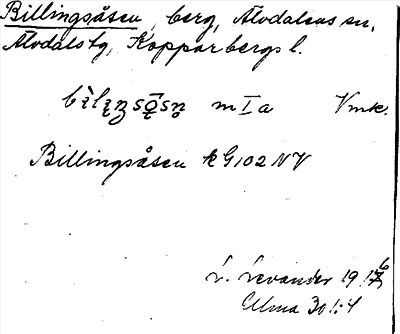 Billingsåsen, berg, Älvdalens sn,
Älvdals tg, Kopparbergs l.
m I a Vmk.
Billingsåsen k G102 NV
L. Levander 19
Alma 30 1:4